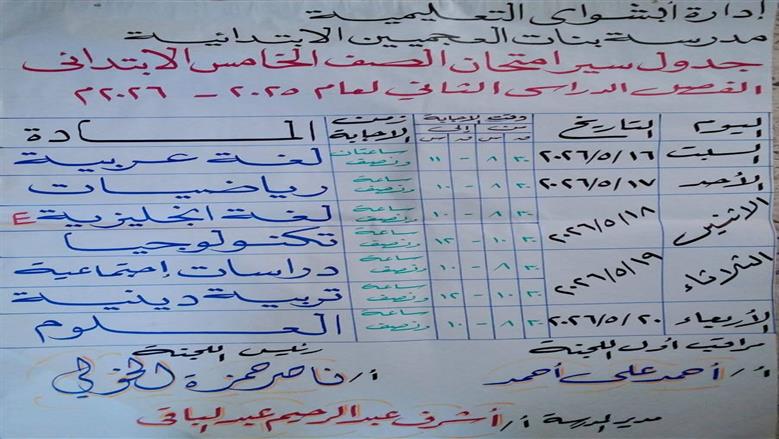 إدارة أبشواى التعليمية
مدرسة بنات العجميين الابتدائية
جدول سير امتحان الصف الخامس الابتدائى
الفصل الدراسى الثانى لعام ٢٠٢٥ - ٢٠٢٦م
اليوم التاريخ وقت الإجابة من إلى ق س ق س زمن الإجابة المادة
السبت ٢٠٢٦/٥/١٦ ٣٠ ٨ - ١١ ساعتان ونصف لغة عربية
الأحد ٢٠٢٦/٥/١٧ ٣٠ ٨ - ١٠ ساعة ونصف رياضيات
الاثنين ٢٠٢٦/٥/١٨ ٣٠ ٨ - ١٠ ساعة ونصف لغة انجليزية E
٣٠ ١٠ - ١٢ ساعة ونصف تكنولوجيا
الثلاثاء ٢٠٢٦/٥/١٩ ٣٠ ٨ - ١٠ ساعة ونصف دراسات إجتماعية
٣٠ ١٠ - ١٢ ساعة ونصف تربية دينية
الأربعاء ٢٠٢٦/٥/٢٠ ٣٠ ٨ - ١٠ ساعة ونصف العلوم
مراقب أول اللجنة رئيس اللجنة
أ/ أحمد على أحمد أ/ ناصر حمزة الخولي
مدير المدرسة أ/ أشرف عبد الرحيم عبد الباقى